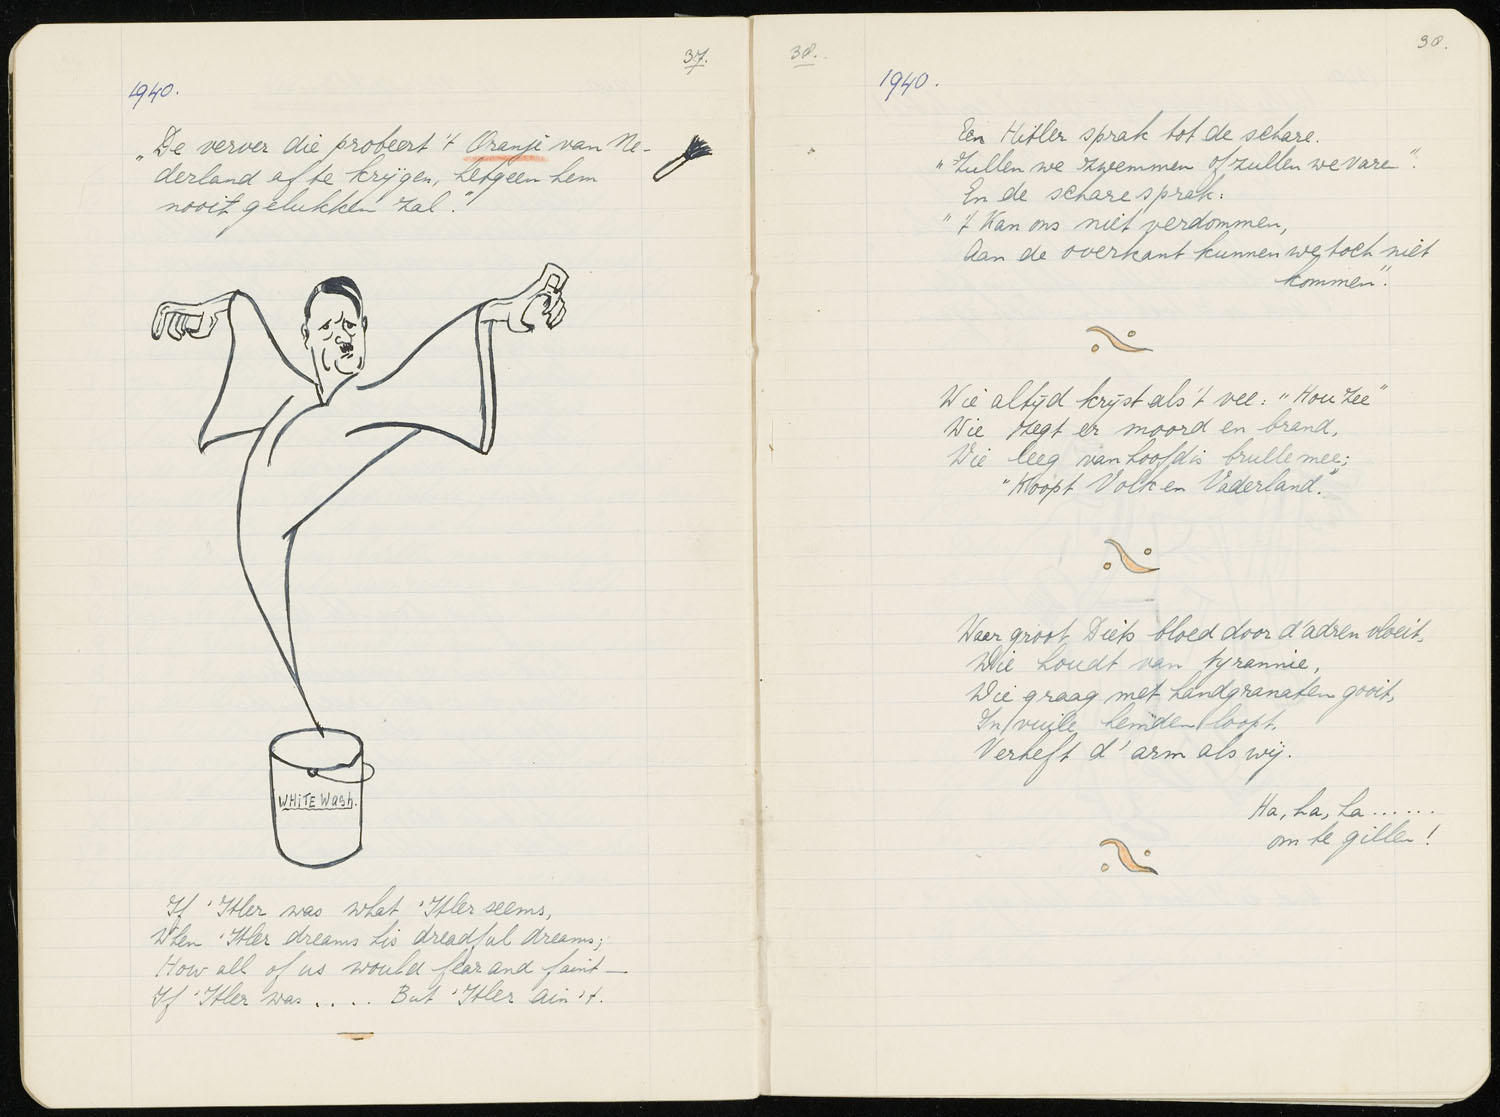 37.
1940.
„De verver die probeert 't Oranje van Ne-
derland af te krijgen, hetgeen hem
nooit gelukken zal."
WHiTE Wash.
If 'Itler was what 'Itler seems,
When 'Itler dreams his dreadful dreams;
How all of us would fear and faint —
If 'Itler was .... But 'Itler ain't.
38.
38.
1940.
En Hitler sprak tot de schare.
"Zullen we zwemmen of zullen we vare".
En de schare sprak:
"'t Kan ons niet verdommen,
Aan de overkant kunnen we toch niet
kommen".
Wie altijd krijst als 't vee: "Hou Zee"
Wie zegt er moord en brand,
Wie leeg van hoofd is brulle mee;
"Hoopt Volk en Vaderland."
Waar groot Diets bloed door d'adren vloeit,
Wie houdt van tyrannie,
Wie graag met handgranaten gooit,
In vuile hemden loopt.
Verheft d'arm als wij.
Ha, ha, ha......
om te gillen!